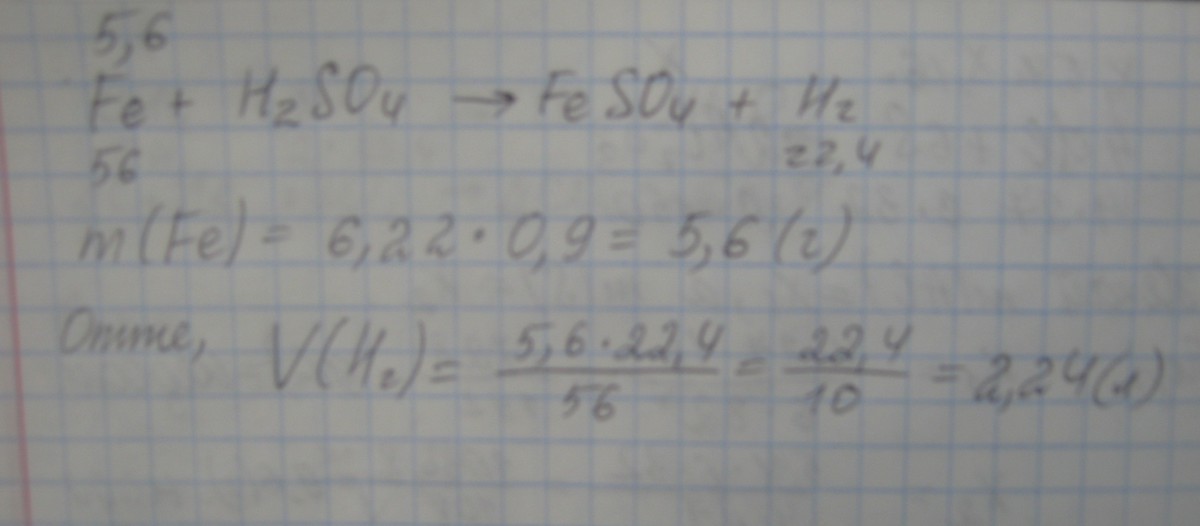 5,6
Fe + H₂SO₄ → FeSO₄ + H₂
56 22,4
m(Fe) = 6,22 · 0,9 = 5,6 (г)
Отже, V(H₂) = 5,6 · 22,4 / 56 = 22,4 / 10 = 2,24 (л)